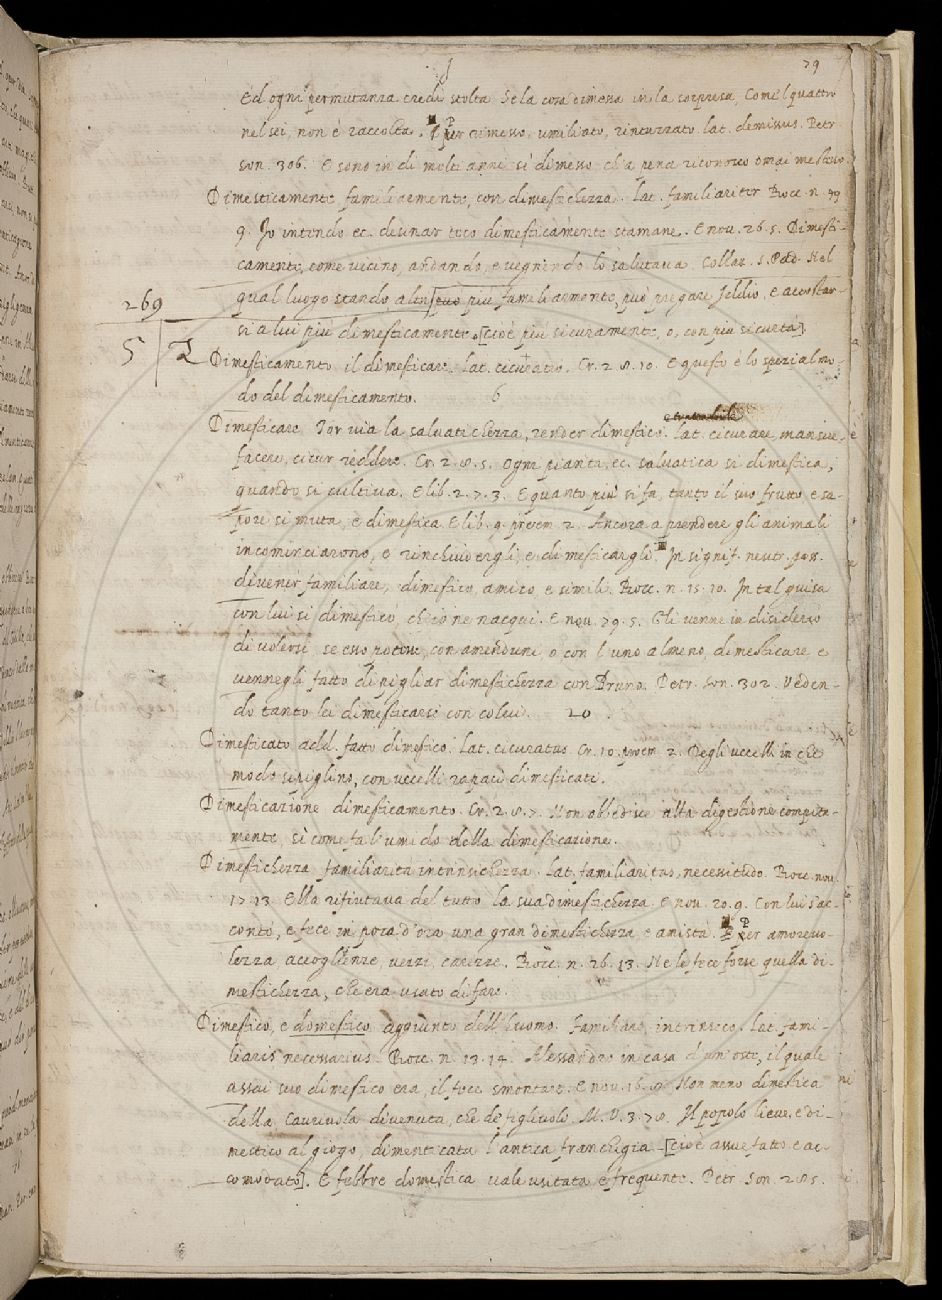 29
Ed ogni permutanza credi stolta Se la cosa dimessa in la sorpresa, Come 'l quattro
nel sei, non è raccolta. ¶ Per rimesso, umiliato, rintuzzato. lat. demissus. Petr.
son. 306. E sono in di molti anni sì dimesso ch'a pena riconosco omai me stesso.
Dimesticamente familiarmente, con dimestichezza. Lat. familiariter Bocc. n. 79
9. Io intendo ec. desinar teco dimesticamente stamane. E nov. 26. 5. Dimesti-
camente, come vicino, andando, e vegnendo lo salutava. Collaz. S. Pad. Nel
269
qual luogo stando altri [può] più familiarmente, può pregare Iddio, e accostar-
si a lui più dimesticamente. [cioè più sicuramente, o, con più sicurtà].
5
Dimesticamento il dimesticare. Lat. cicuratio. Cr. 2. 8. 10. E questo è lo spezial mo-
do del dimesticamento. 6
Dimesticare Tor via la salvatichezza, render dimestico. Lat. cicurare, mansue-
facere, cicur reddere. Cr. 2. 8. 5. Ogni pianta, ec. salvatica si dimestica,
quando si cultiva. E lib. 2. 7. 3. E quanto più si fa, tanto il suo frutto e sa-
pore si muta, e dimestica. E lib. 9. proem. 2. Ancora a prendere gli animali
incominciarono, e rinchiudergli, e dimesticargli. In signif. neutr. pas.
divenir familiare, dimestico, amico, e simili. Bocc. n. 15. 10. In tal guisa
con lui si dimesticò, ch'io ne nacqui. E nov. 79. 5. Gli venne in disiderio
di volersi, se esso potesse, con amenduni, o con l'uno almeno, dimesticare e
vennegli fatto di pigliar dimestichezza con Bruno. Petr. Son. 302. Veden-
do tanto lei dimesticarsi con colui. 20.
Dimesticato add. fatto dimestico. Lat. cicuratus. Cr. 10. proem. 2. Degli uccelli in che
modo si piglino, con uccelli rapaci dimesticati.
Dimesticazione dimesticamento. Cr. 2. 8. 7. Non obbedisce alla digestione compiuta-
mente, sì come fa l'umido della dimesticazione.
Dimestichezza familiarità intrinsichezza. Lat. familiaritas, necessitudo. Bocc. nov.
17. 13. Ella rifiutava del tutto la sua dimestichezza. E nov. 20. 9. Con lui s'ac-
contò, e fece in poca d'ora una gran dimestichezza e amistà. ¶ Per amorevo-
lezza accoglienze, vezzi, carezze. Bocc. n. 26. 13. Ne le fece forse quella di-
mestichezza, che era usato di fare.
Dimestico, e domestico aggiunto dell'huomo. familiare, intrinseco. Lat. fami-
liaris necessarius. Bocc. n. 13. 14. Alessandro in casa d'un oste, il quale
assai suo dimestico era, il fece smontare. E nov. 16. 8. Non meno dimestica
della Cavriuola divenuta, che de figliuoli. M. V. 3. 78. Il popolo lieve, e di-
mestico al giogo, dimenticata l'antica franchigia. [cioè assuefatto e ac-
comodato]. E febbre domestica vale usitata e frequente. Petr. Son. 285.